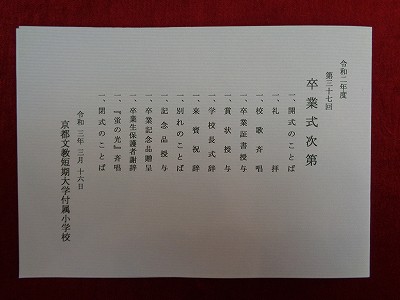 令和二年度
第三十七回
卒業式次第
一、開式のことば
一、礼拝
一、校歌斉唱
一、卒業証書授与
一、賞状授与
一、学校長式辞
一、来賓祝辞
一、別れのことば
一、記念品授与
一、卒業記念品贈呈
一、卒業生保護者謝辞
一、『蛍の光』斉唱
一、閉式のことば
令和三年三月十六日
京都文教短期大学付属小学校